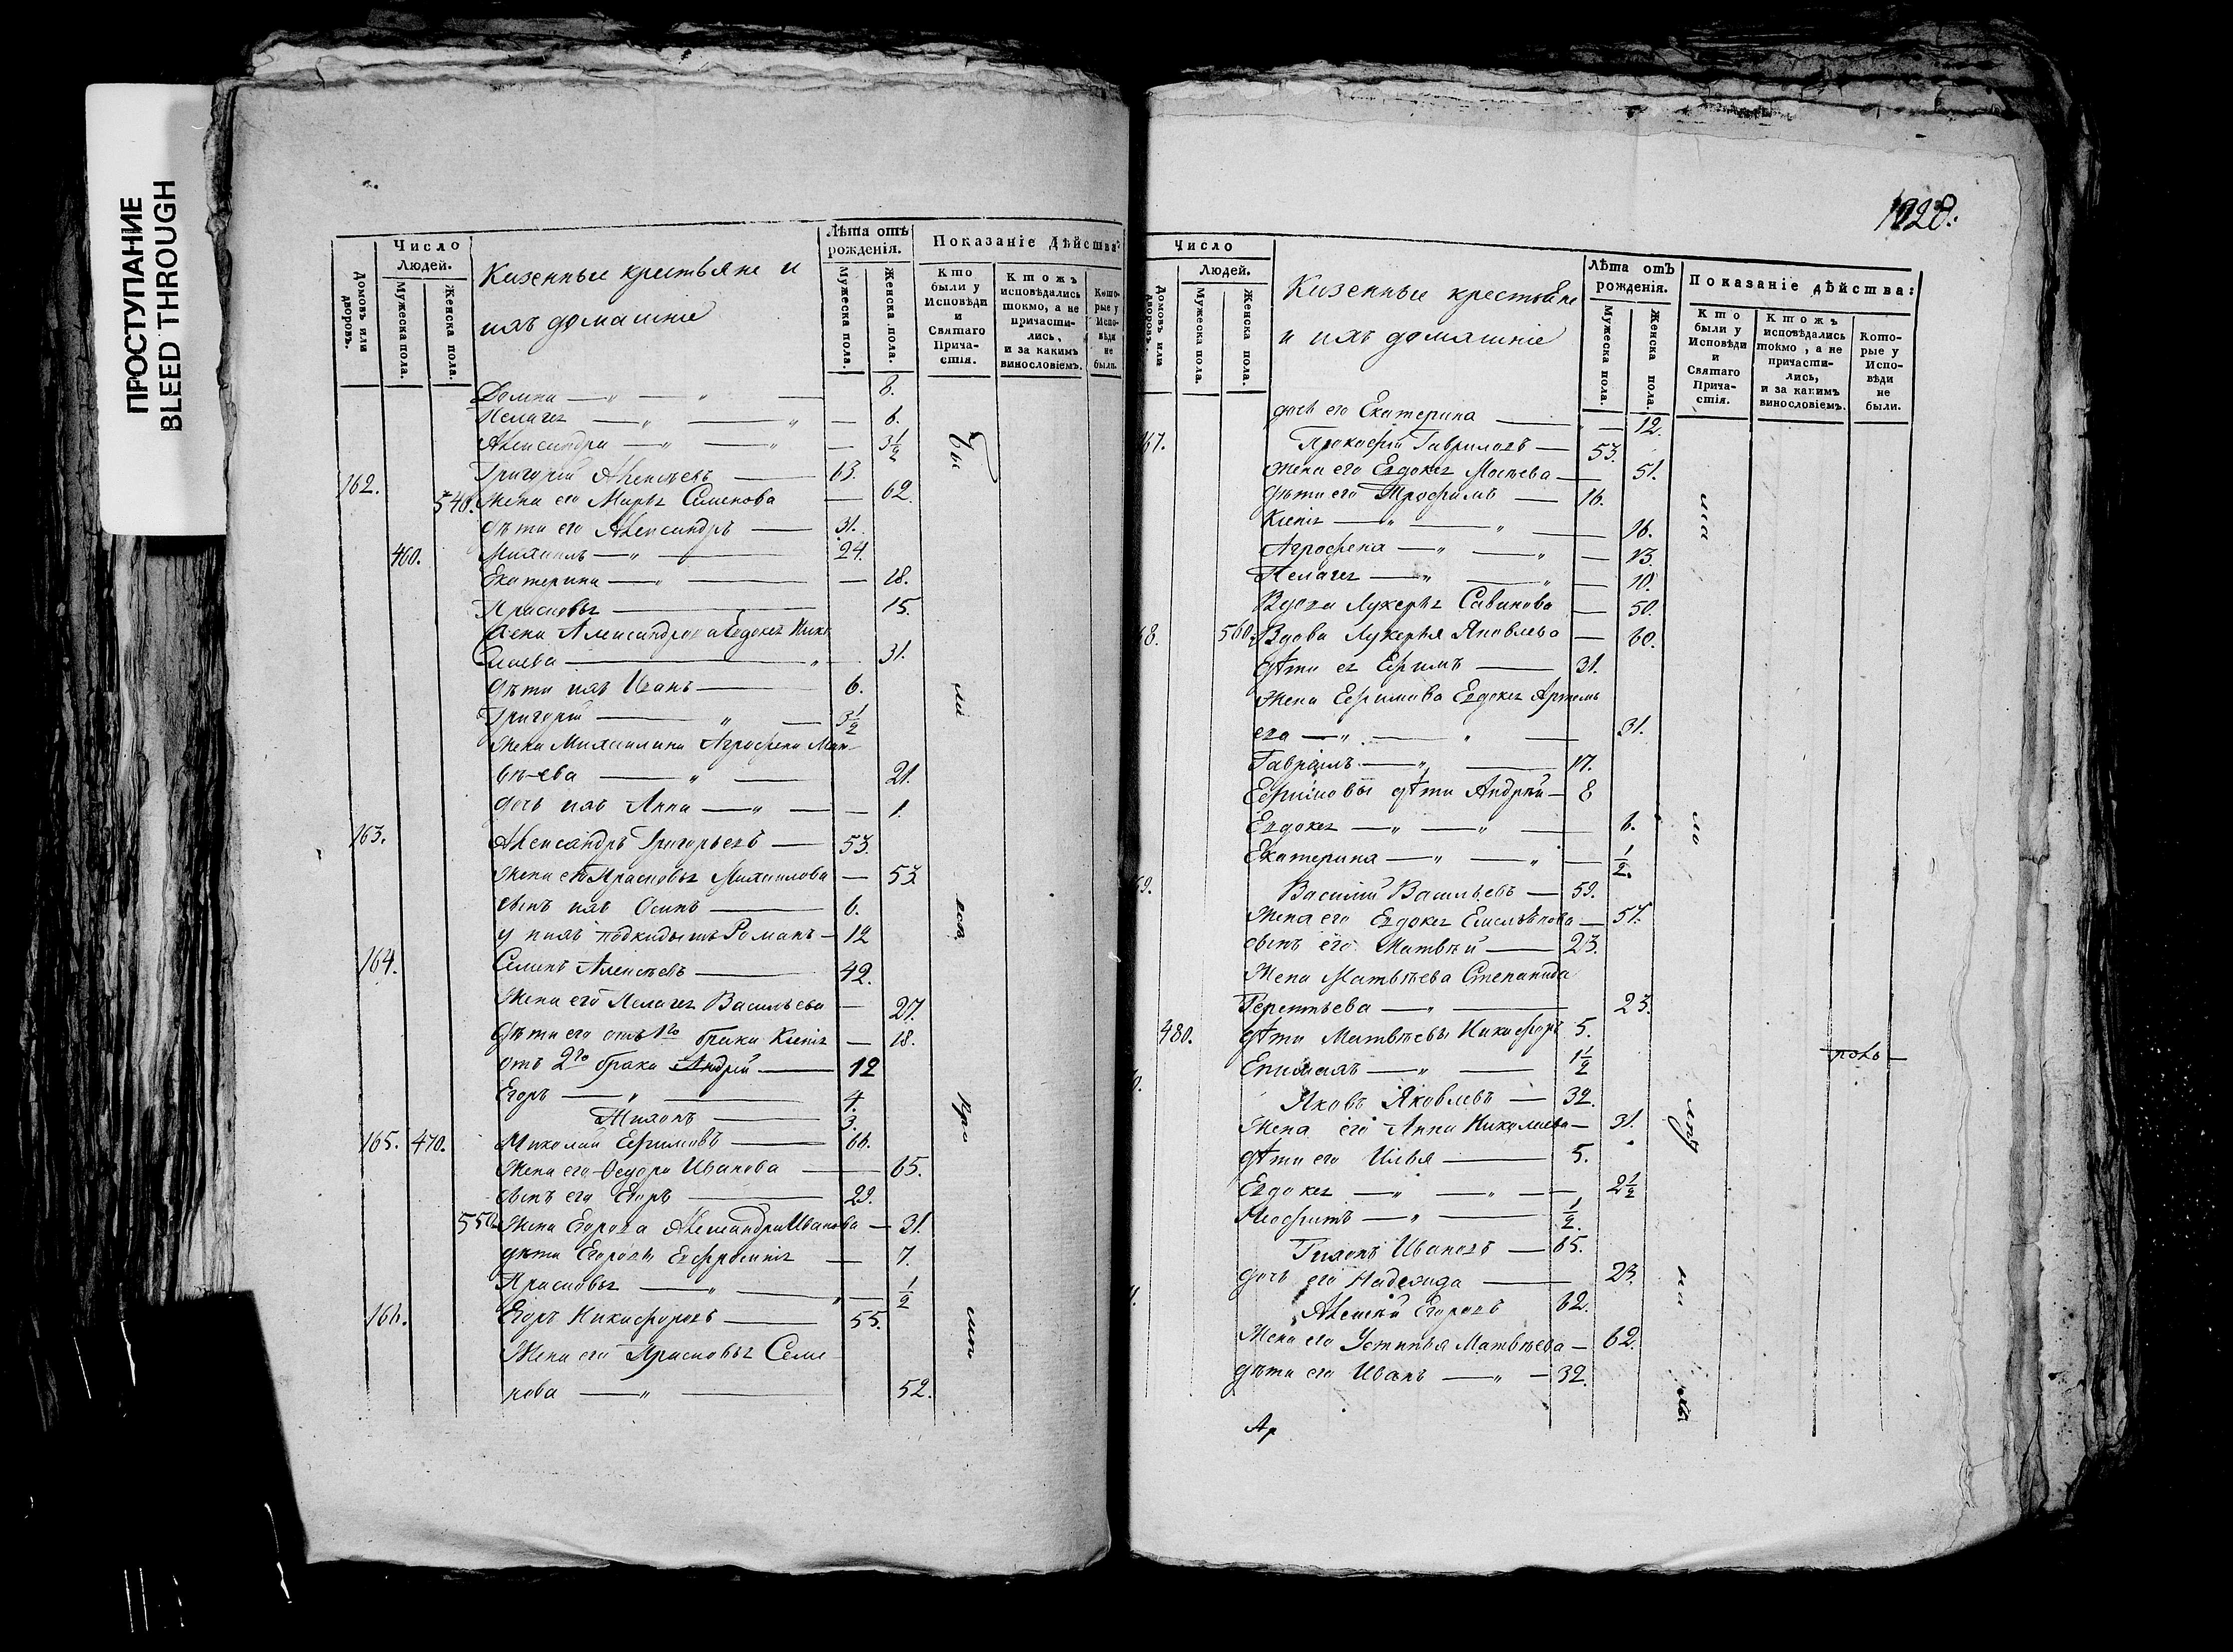 ПРОСТУПАНИЕ
BLEED THROUGH
Число
Людей.
Домовъ или дворовъ.
Мужеска пола.
Женска пола.
Казенные крестьяне и
ихъ домашніе
Лѣта отъ рожденія.
Мужеска пола.
Женска пола.
Показаніе дѣйства:
Кто были у Исповѣди и Святаго Прича-стія.
Ктожъ исповѣдались токмо, а не причасти-лись, и за какимъ винословіемъ.
Кото-рые у Испо-вѣди не были.
Домна — „ — „ — 8.
Пелагея — „ — „ — 6.
Александра — „ — „ — 3 1/2
162. Григорій Алексѣевъ — 63.
540. Жена его Марья Семенова — 62.
дѣти его Александръ — 31.
460. Михаилъ — „ — 24.
Екатерина — „ — 18.
Прасковья — 15.
Жена Александрова Евдокея Нико
лаева — „ — 31.
дѣти ихъ Иванъ — 6.
Григорій — „ — 3 1/2
Жена Михаилина Агрофена Мат-
вѣева — „ — 21.
дочь ихъ Анна — „ — 1.
163. Александръ Григорьевъ — 53.
Жена его Прасковья Михаилова — 53
сынъ ихъ Осипъ — 6.
у нихъ подкидышъ Романъ — 12
164. Семенъ Алексѣевъ — 42.
Жена его Пелагея Васильева — 27.
дѣти его отъ 1го брака Ксенія — 18.
отъ 2го брака Андрей — 12
Егоръ — „ — 4.
Тихонъ — 3.
165. 470. Николай Ефимовъ — 66.
Жена его Ѳедора Иванова — 65.
сынъ его Егоръ — 29.
550. Жена Егорова Александра Иванова — 31.
дѣти Егоровы Евфросинія — 7.
Прасковья — „ — 1/2
166. Егоръ Никифоровъ — 55.
Жена его Прасковья Семе
нова — „ — 52.
Бы
ли
1028.
Число
Людей.
Домовъ или дворовъ.
Мужеска пола.
Женска пола.
Казенные крестьяне
и ихъ домашніе
Лѣта отъ рожденія.
Мужеска пола.
Женска пола.
Показаніе дѣйства:
Кто были у Исповѣди и Святаго Прича-стія.
Ктожъ исповѣдались токмо, а не причасти-лись, и за какимъ винословіемъ.
Кото-рые у Испо-вѣди не были.
дочь его Екатерина — 12.
67. Прокофій Гавриловъ — 53.
Жена его Евдокея Мосѣева — 51.
дѣти его Трофимъ — 16.
Ксенія — „ — „ — 16.
Агрофена — „ — „ — 13.
Пелагея — „ — „ — 10.
Вдова Лукерья Савинова — 50.
68. 560. Вдова Лукерья Яковлева — 60.
дѣти ея Ефимъ — 31.
Жена Ефимова Евдокея Артемь
ева — „ — „ — 31.
Гавріилъ — „ — 17.
Ефимовы дѣти Андрей — 8
Евдокея — „ — „ — 6.
Екатерина — „ — „ — 1/2.
69. Василій Васильевъ — 59.
Жена его Евдокея Емельянова — 57.
сынъ его Матвѣй — 23.
Жена Матвѣева Степанида
Терентьева — „ — 23.
480. дѣти Матвѣевы Никифоръ 5.
Епимахъ — „ — 1 1/2
Яковъ Яковлевъ — 32.
Жена его Анна Николаева — 31.
дѣти его Илья — 5.
Евдокея — „ — „ — 2 1/2
Неофитъ — „ — 1/2.
Тихонъ Ивановъ — 65.
дочь его Надежда — 23.
Алексѣй Егоровъ 62.
Жена его Устинья Матвѣева — 62.
дѣти его Иванъ — „ — 32.
Ар